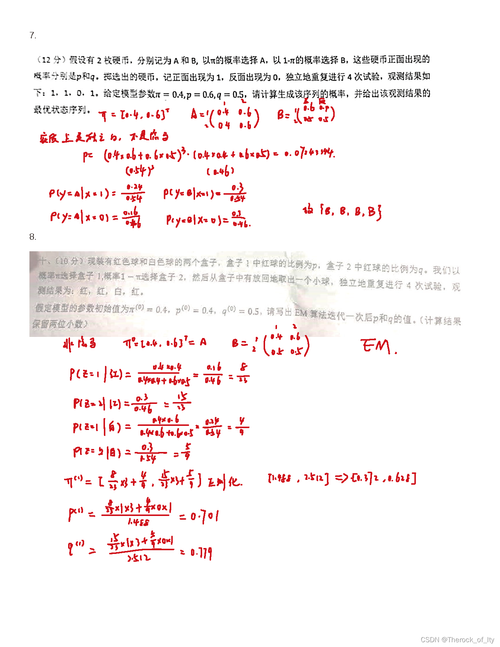 7.
（12 分）假设有 2 枚硬币，分别记为 A 和 B, 以π的概率选择 A，以 1-π的概率选择 B，这些硬币正面出现的
概率分别是p和q。掷选出的硬币，记正面出现为 1，反面出现为 0，独立地重复进行 4 次试验，观测结果如
下：1，1，0，1，给定模型参数π = 0.4, p = 0.6, q = 0.5，请计算生成该序列的概率，并给出该观测结果的
最优状态序列。 π = [0.4, 0.6]ᵀ A = (0.4 0.6 0.4 0.6) B =
实际上是独立的，不是隐马
P= (0.4×0.6 + 0.6×0.5)³ · (0.4×0.4 + 0.6×0.5) =
(0.54)³ (0.46)
P(y=A|x=1) = 0.24/0.54 P(y=B|x=1) = 0.3/0.54
P(y=A|x=0) = 0.16/0.46 P(y=B|x=0) = 0.3/0.46. 故 {B, B, B, B}
8.
十、（10 分）现装有红色球和白色球的两个盒子，盒子 1 中红球的比例为p，盒子 2 中红球的比例为q。我们以
概率π选择盒子 1,概率1 − π选择盒子 2，然后从盒子中有放回地取出一个小球，独立地重复进行 4 次试验，观
测结果为：红，红，白，红。
假定模型的参数初始值为π⁽⁰⁾ = 0.4，p⁽⁰⁾ = 0.4，q⁽⁰⁾ = 0.5，请写出 EM 算法迭代一次后p和q的值。（计算结果
保留两位小数）
非隐马 π⁰ = [0.4, 0.6]ᵀ = A B = (0.4 0.6 0.5 0.5) EM.
P(Z=1|红) = 0.4×0.4/0.4×0.4+0.6×0.5 = 0.16/0.46 = 8/23
P(Z=2|红) = 0.3/0.46 = 15/23
P(Z=1|白) = 0.4×0.6/0.4×0.6+0.6×0.5 = 0.24/0.54 = 4/9
P(Z=2|白) = 0.3/0.54 = 5/9
π⁽¹⁾ = [8/23 ×3 + 4/9, 15/23 ×3 + 5/9] 正则化. [1.488, 2.512] => [0.372, 0.628]
p⁽¹⁾ = 8/23 ×1×3 + 4/9 ×0×1/1.488 = 0.701
q⁽¹⁾ = 15/23 ×1×3 + 5/9 ×0×1/2.512 = 0.779
CSDN @Therock_of_lty